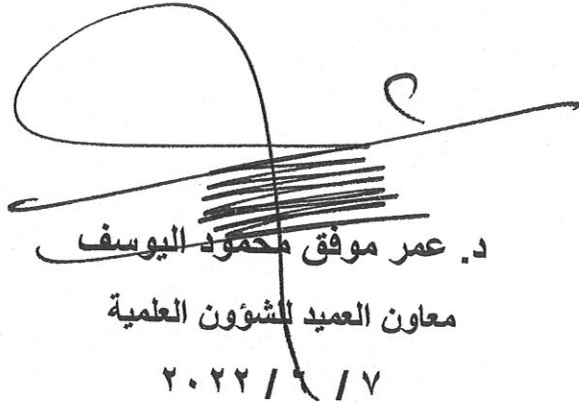 د. عمر موفق محمود اليوسف
معاون العميد للشؤون العلمية
٧ / ٦ / ٢٠٢٢